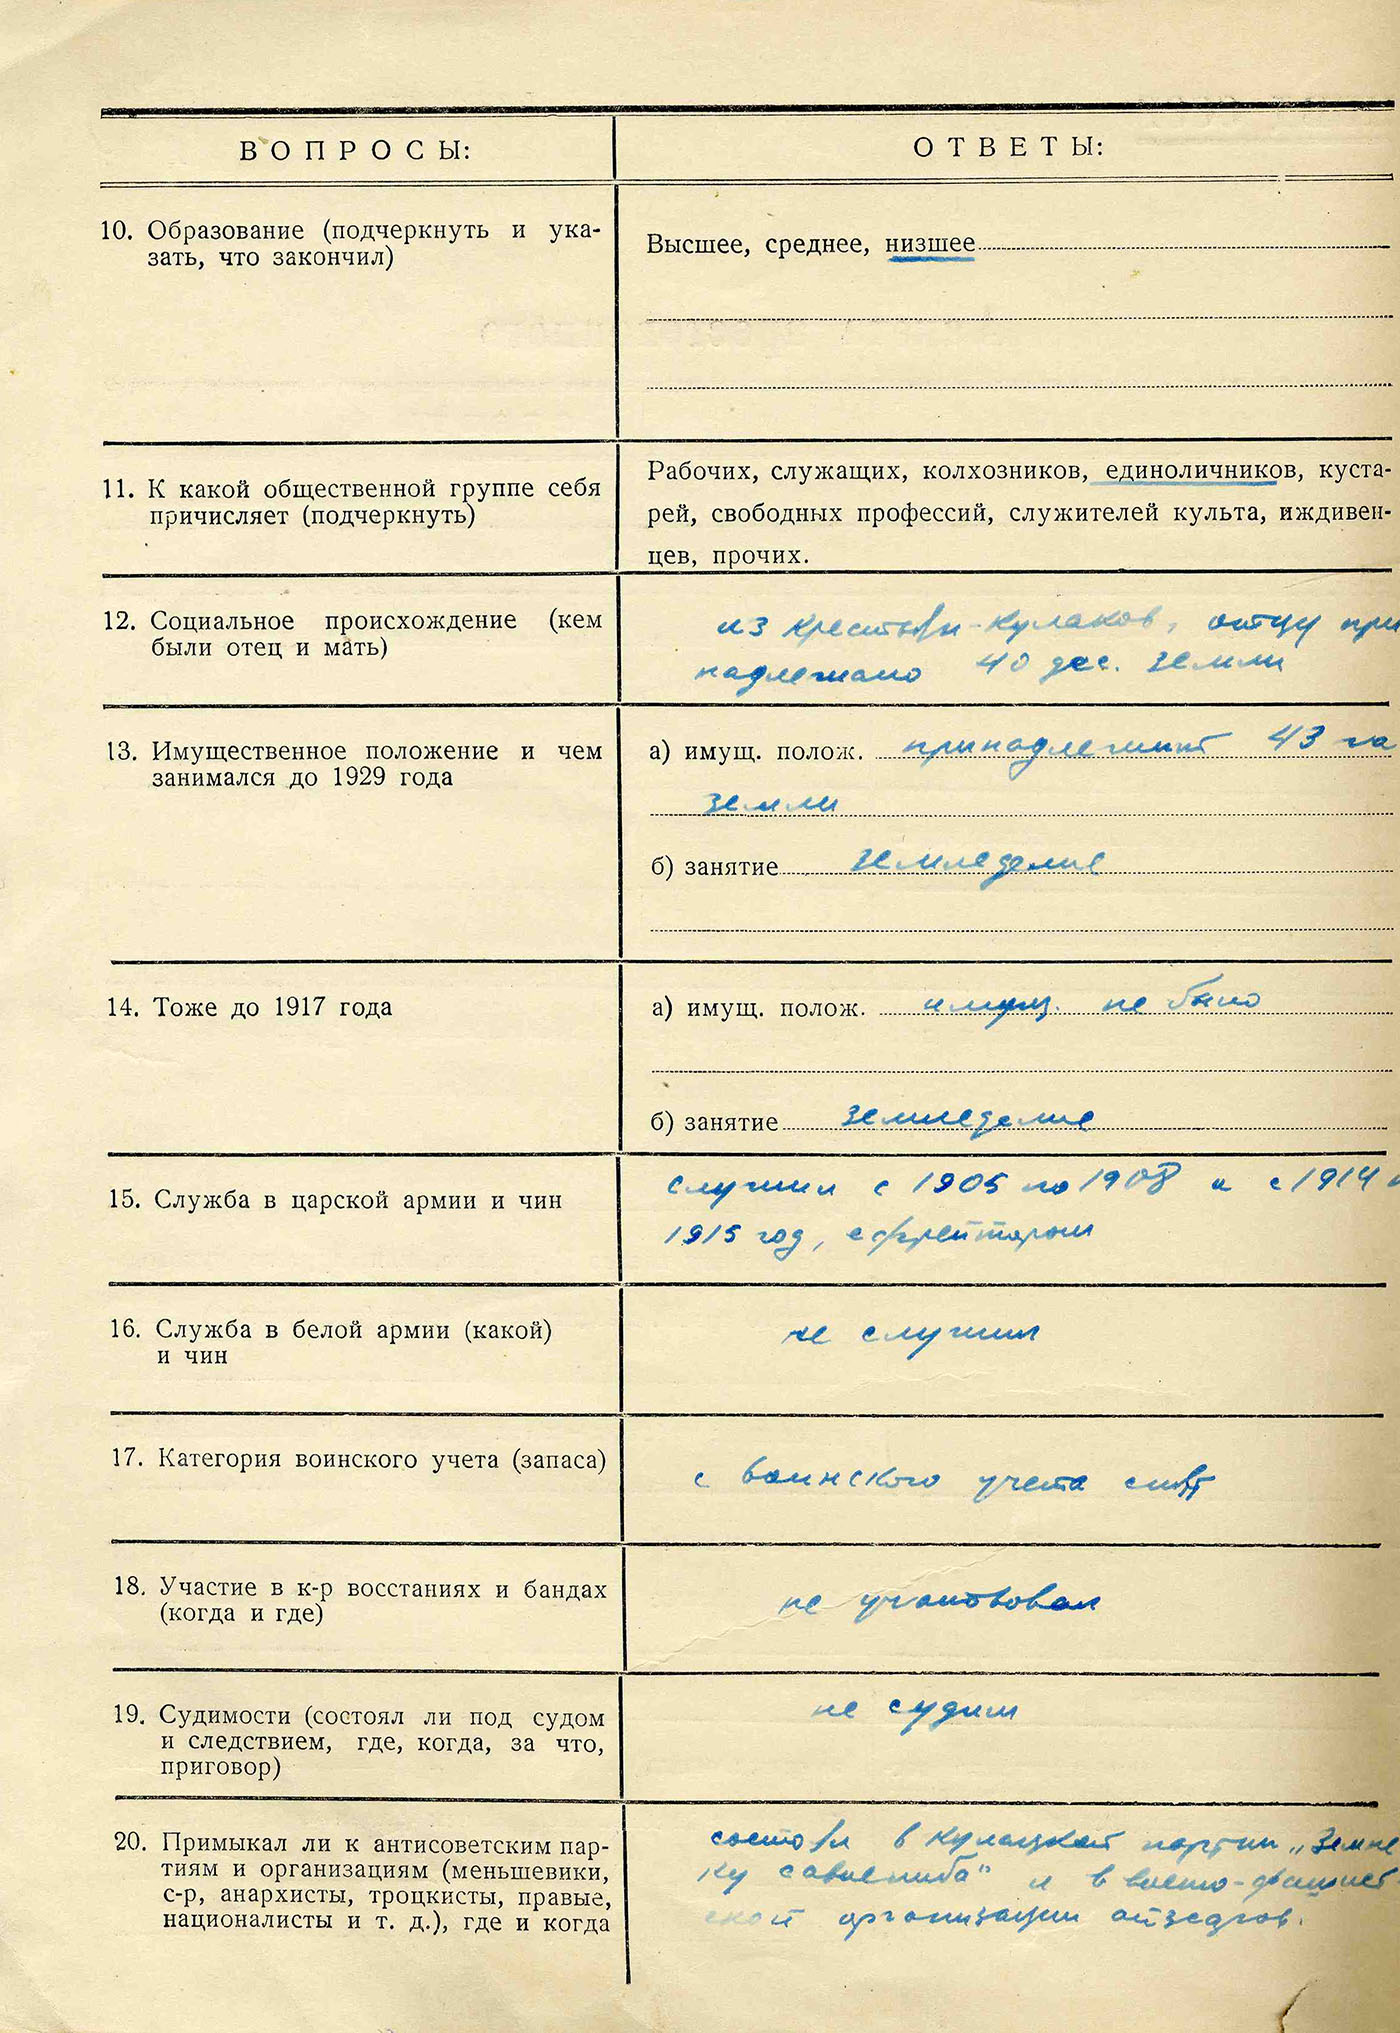 ВОПРОСЫ:
ОТВЕТЫ:
10. Образование (подчеркнуть и ука-
зать, что закончил)
Высшее, среднее, низшее
11. К какой общественной группе себя
причисляет (подчеркнуть)
Рабочих, служащих, колхозников, единоличников, куста-
рей, свободных профессий, служителей культа, иждивен-
цев, прочих.
12. Социальное происхождение (кем
были отец и мать)
из крестьян-кулаков, отцу при
надлежало 40 дес. земли
13. Имущественное положение и чем
занимался до 1929 года
а) имущ. полож. принадлежит 43 га
земли
б) занятие земледелие
14. Тоже до 1917 года
а) имущ. полож. имущ. не было
б) занятие земледелие
15. Служба в царской армии и чин
служил с 1905 по 1908 и с 1914 п
1915 год, ефрейтором
16. Служба в белой армии (какой)
и чин
не служил
17. Категория воинского учета (запаса)
с воинского учета снят
18. Участие в к-р восстаниях и бандах
(когда и где)
не участвовал
19. Судимости (состоял ли под судом
и следствием, где, когда, за что,
приговор)
не судим
20. Примыкал ли к антисоветским пар-
тиям и организациям (меньшевики,
с-р, анархисты, троцкисты, правые,
националисты и т. д.), где и когда
состоял в кулацкой партии „Земне
ку савиениба" и в военно-фашист-
ской организации айзсаргов.